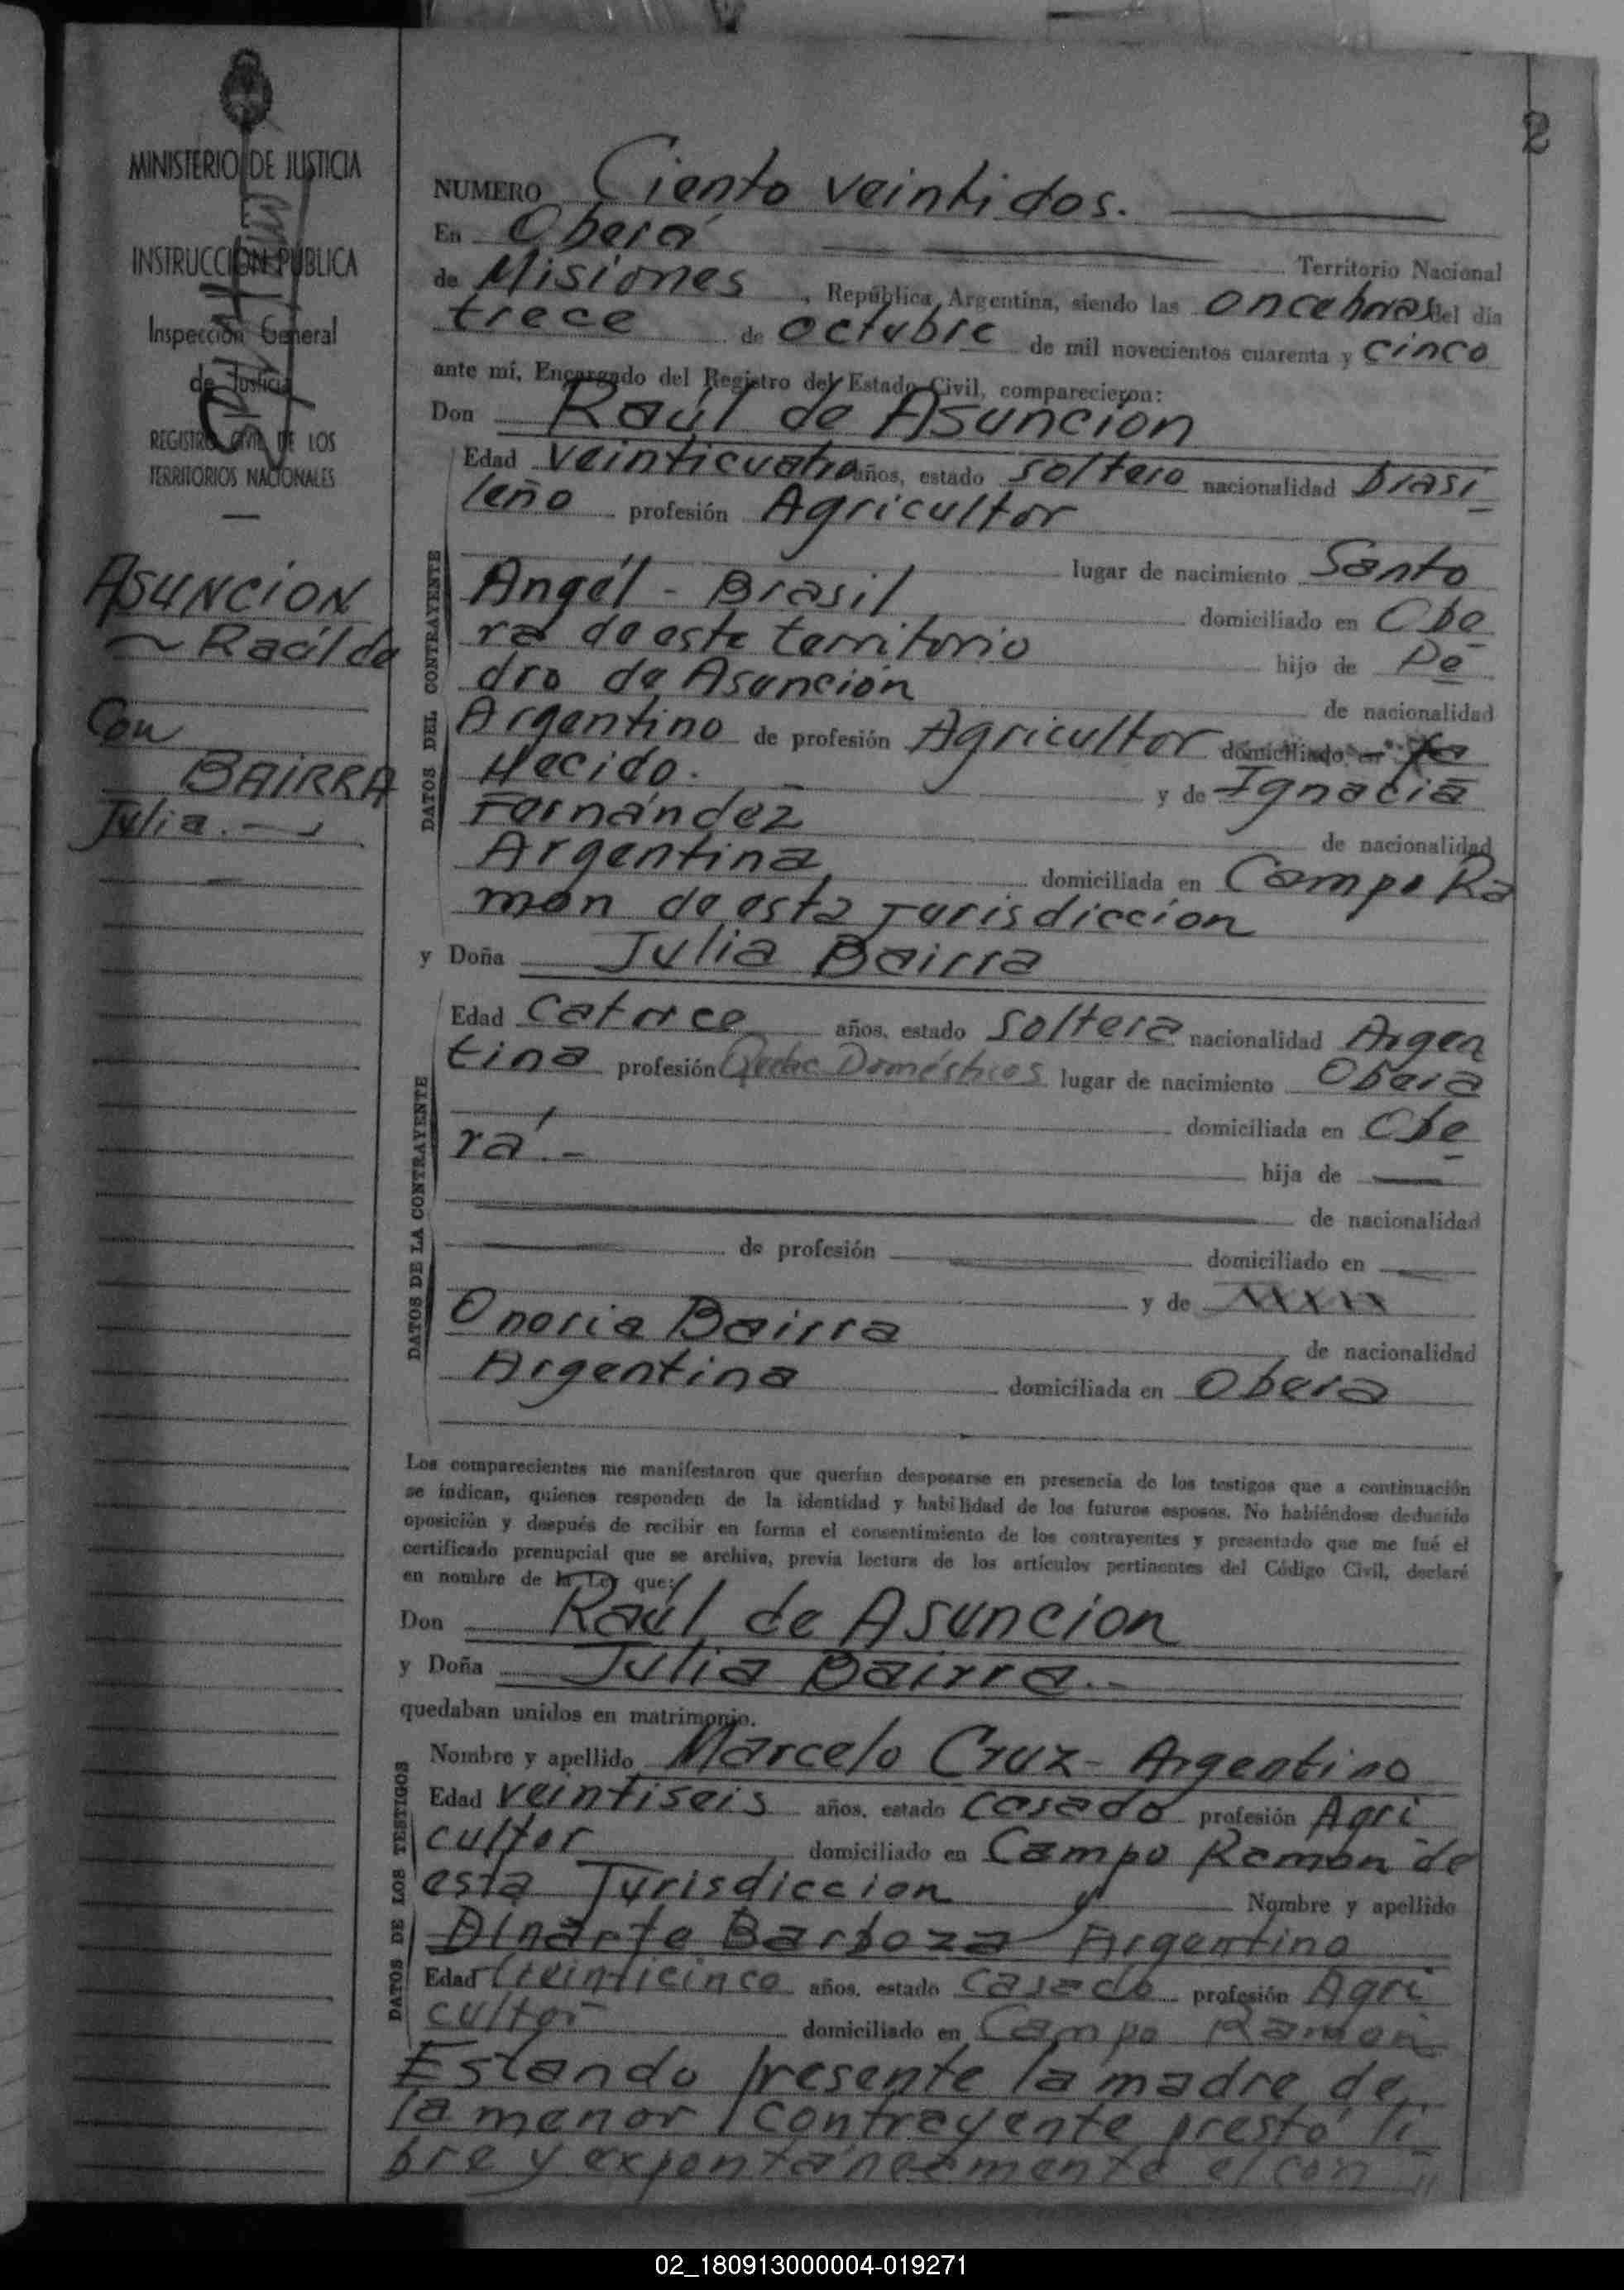 2
MINISTERIO DE JUSTICIA
INSTRUCCION PUBLICA
Inspección General
de Justicia
REGISTRO CIVIL DE LOS
TERRITORIOS NACIONALES
ASUNCION
Raúl de
Con
BAIRRA
Julia.
NUMERO Ciento veintidos.
En Oberá Territorio Nacional
de Misiones, República Argentina, siendo las once horas del día
trece de octubre de mil novecientos cuarenta y cinco
ante mí, Encargado del Registro del Estado Civil, comparecieron:
Don Raúl de Asuncion
DATOS DEL CONTRAYENTE
Edad veinticuatro años, estado soltero nacionalidad brasi
leño profesión Agricultor
lugar de nacimiento Santo
Angel - Brasil domiciliado en Obe
rá de este territorio hijo de Pe
dro de Asunción de nacionalidad
Argentino de profesión Agricultor domiciliado en fa
llecido. y de Ignacia
Fernández de nacionalidad
Argentina domiciliada en Campo Ra
mon de esta Jurisdiccion
y Doña Julia Bairra
DATOS DE LA CONTRAYENTE
Edad Catorce años, estado Soltera nacionalidad Argen
tina profesión Domésticos lugar de nacimiento Obera
domiciliada en Obe
rá.- hija de
de nacionalidad
de profesión domiciliado en
y de XXXXX
Onoria Bairra de nacionalidad
Argentina domiciliada en Obera
Los comparecientes me manifestaron que querían desposarse en presencia de los testigos que a continuación
se indican, quienes responden de la identidad y habilidad de los futuros esposos. No habiéndose deducido
oposición y después de recibir en forma el consentimiento de los contrayentes y presentado que me fué el
certificado prenupcial que se archiva, previa lectura de los artículos pertinentes del Código Civil, declaré
en nombre de la Ley que:
Don Raúl de Asuncion
y Doña Julia Bairra.-
quedaban unidos en matrimonio.
DATOS DE LOS TESTIGOS
Nombre y apellido Marcelo Cruz - Argentino
Edad veintiseis años, estado casado profesión Agri
cultor domiciliado en Campo Ramon de
esta Jurisdiccion y Nombre y apellido
Dinarte Barboza Argentino
Edad veinticinco años, estado casado profesión Agri
cultor domiciliado en Campo Ramon
Estando presente la madre de
la menor contrayente prestó li
bre y expontáneamente el con
02_180913000004-019271